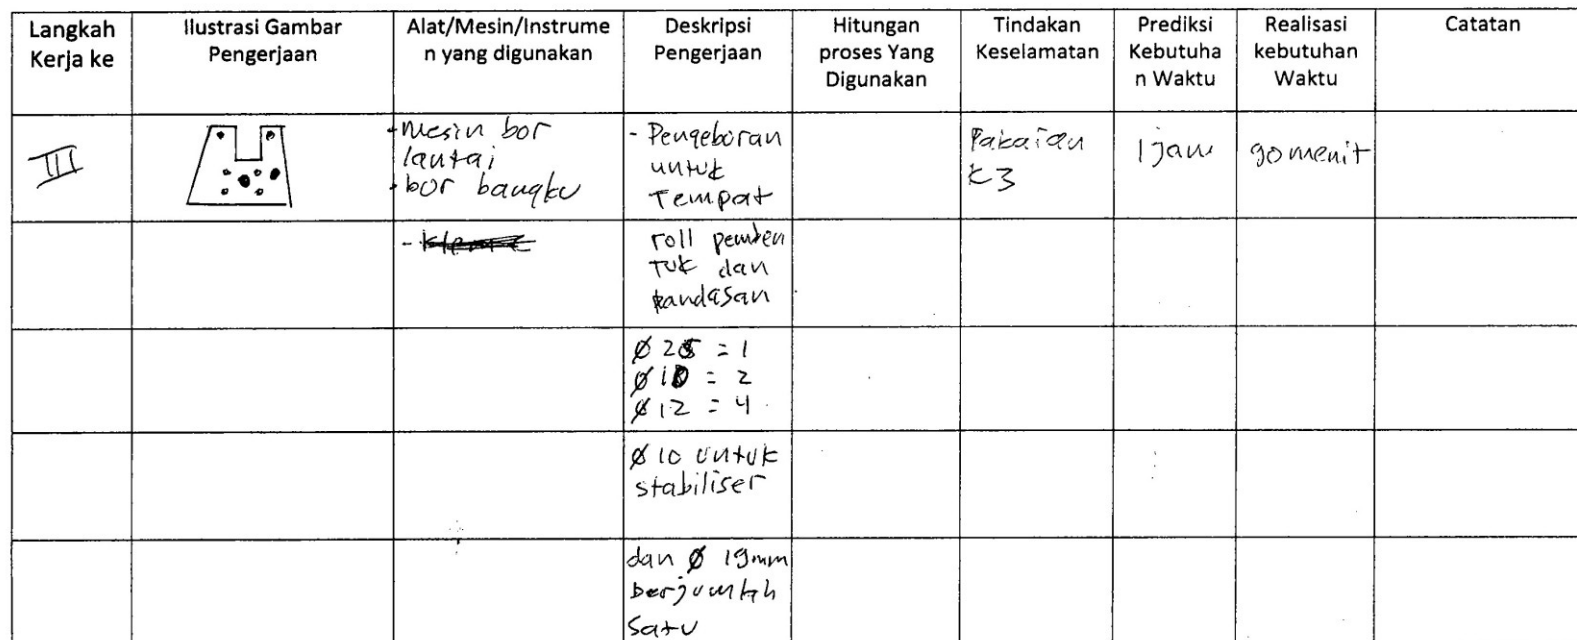 Langkah Kerja ke
Ilustrasi Gambar Pengerjaan
Alat/Mesin/Instrume n yang digunakan
Deskripsi Pengerjaan
Hitungan proses Yang Digunakan
Tindakan Keselamatan
Prediksi Kebutuha n Waktu
Realisasi kebutuhan Waktu
Catatan
III
- Mesin bor
lantai
- bor bangku
- Pengeboran
untuk
Tempat
Pakaian
K3
1 jam
90 menit
roll pemben
tuk dan
landasan
Ø 25 = 1
Ø 10 = 2
Ø 12 = 4
Ø 10 untuk
stabiliser
dan Ø 19mm
berjumlah
satu